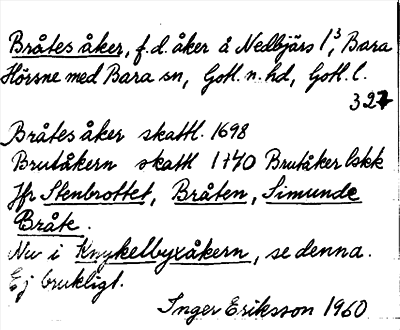 Bråtes åker, f.d. åker å Nedbjärs 1³, Bara
Hörsne med Bara sn, Gotl. n. hd, Gotl. l.
327
Bråtes åker skattl. 1698
Brutåkern skattl 1740 Brutåker lskk
Jfr Stenbrottet, Bråten, Simunde
Bråte.
Nu i Knykelbyxåkern, se denna.
Ej brukligt.
Inger Eriksson 1960